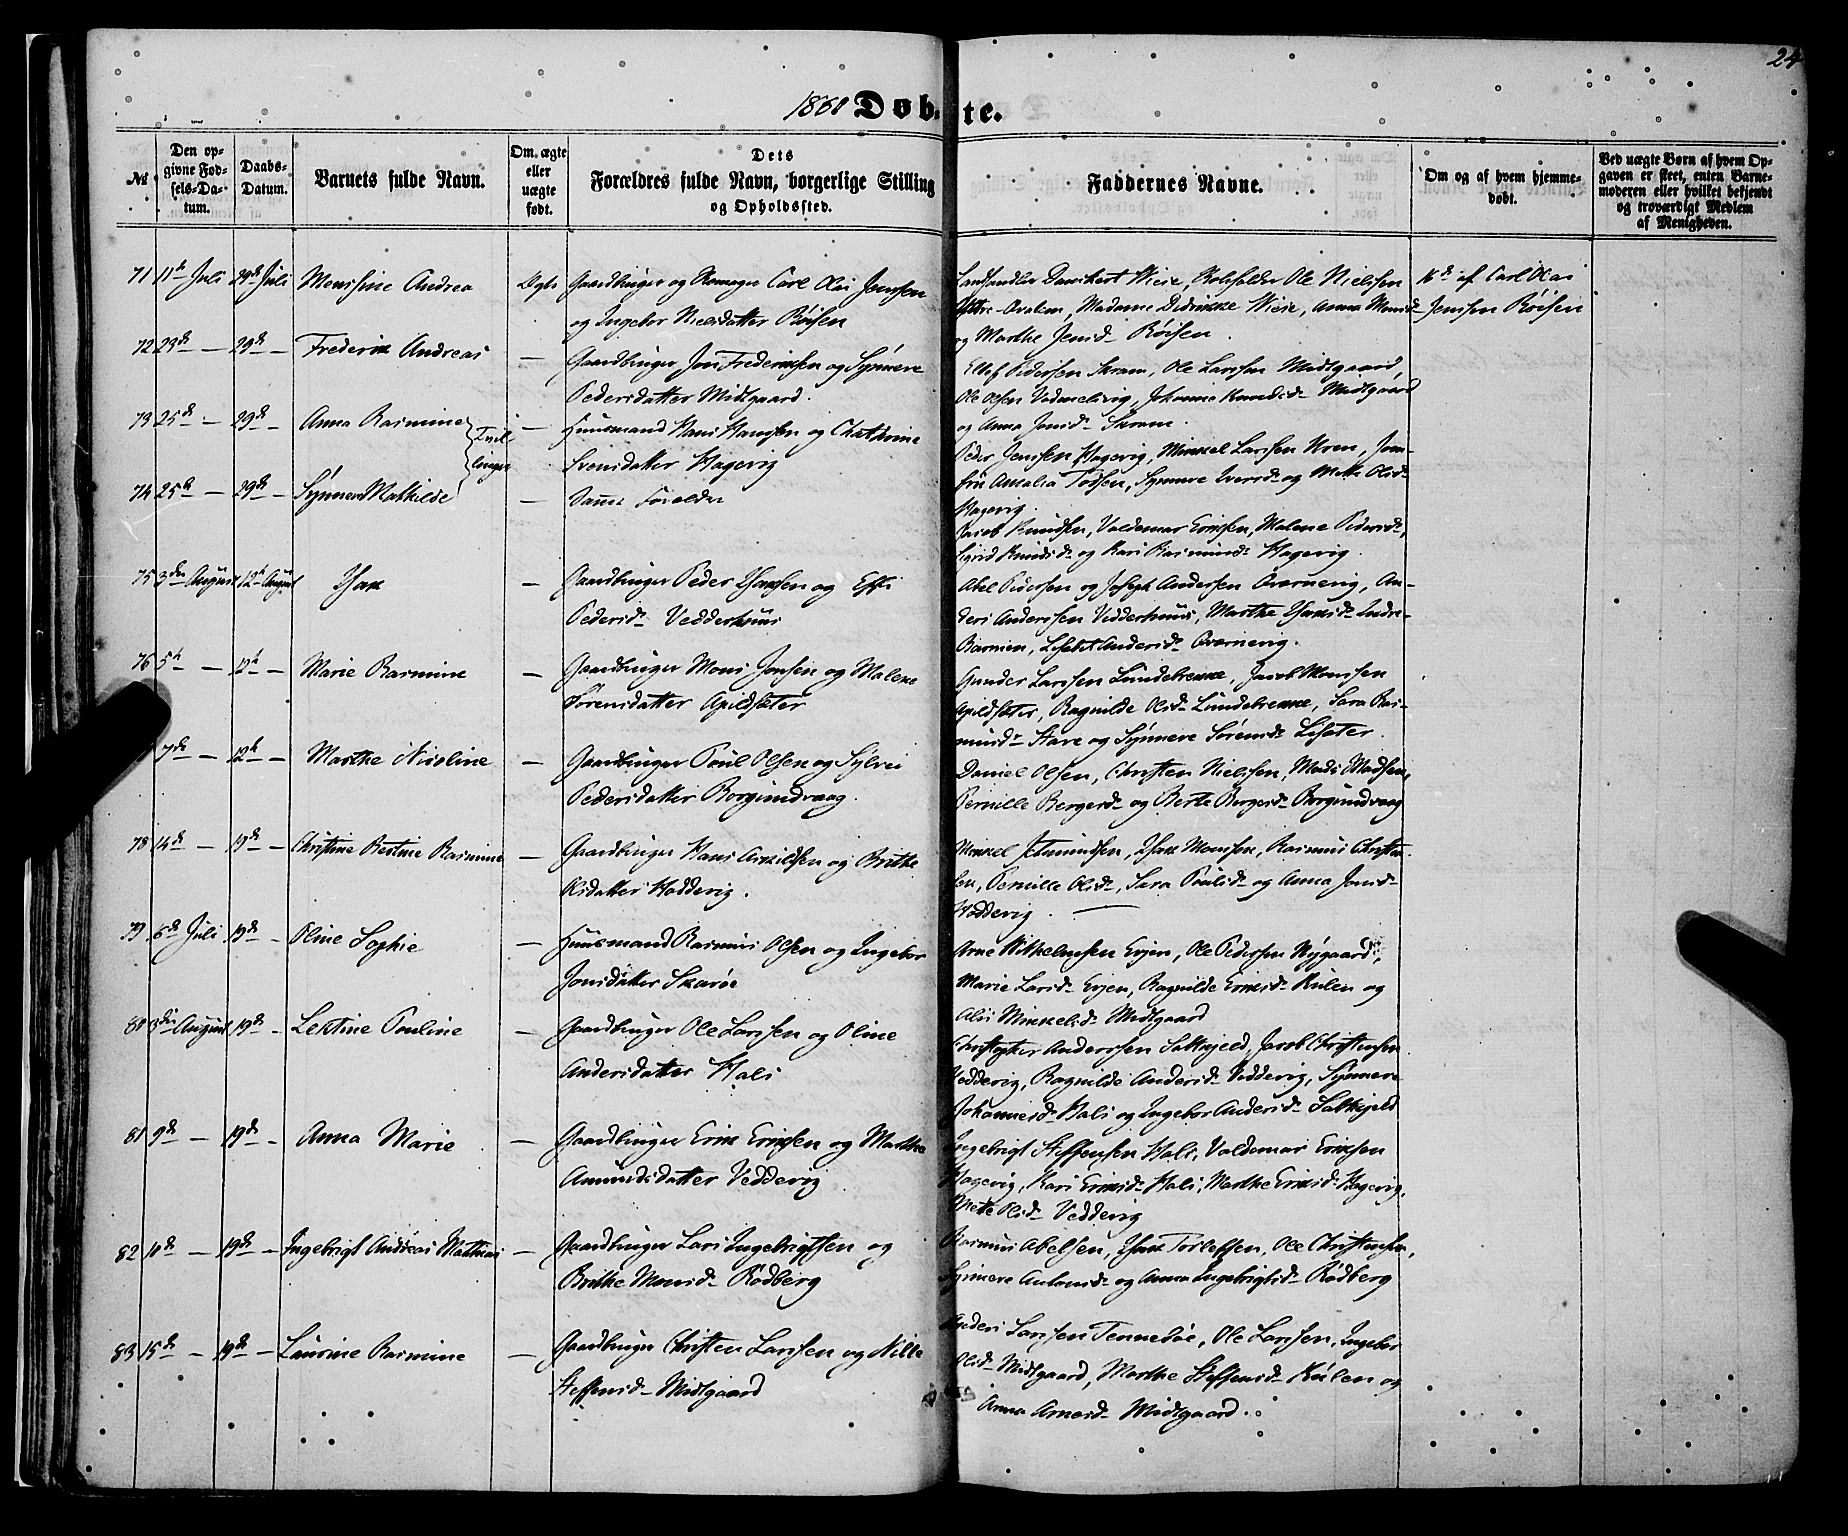 24
1860 Døbte.
No
Den opgivne Fødsels-Datum.
Daabs-Datum.
Barnets fulde Navn.
Om ægte eller uægte født.
Dets Forældres fulde Navn, borgerlige Stilling og Opholdssted.
Faddernes Navne.
Om og af hvem hjemmedøbt.
Ved uægte Børn af hvem Opgaven er skeet, enten Barnemoderen eller hvilket bekjendt og troværdigt Medlem af Menigheden.
71 11te Juli 29de Juli Monsine Andrea Ægte Gaardbruger og Remager Carl Olai Jenssen
og Ingebor Nielsdatter Røisen
Landhandler Danchert Wiese, Rolsholder Ole Nielssen
Madame Didrikke Wiese, Anna Monsd-
og Marthe Jensd- Røisen.
16de af Carl Olai
Jenssen Røisen
72 23de — 29de — Frederik Andreas —
Gaardbruger Jon Frederiksen og Synnere
Pedersdatter Midtgaard.
Ellef Pedersen Skram, Ole Larssen Midtgaard,
Ole Olsen Vedmelivig, Johanne Knudsd- Midtgaard
og Anna Jonsd- Skram.
73 25de — 29de — Anna Rasmine —
Tvillinger
Huusmand Hans Hanssen og Chathrine
Svensdatter Hagevig
Peder Jenssen Hagevig, Mikkel Larssen Uren, Jom-
fru Amalia Todsen, Synnere Iversd- og Mette Olsd-
Hagevig.
74 25de — 29de — Synneve Mathilde —
Samme Forældre
Jacob Knudsen, Valdemar Eriksen, Malene Pedersd-,
Sigrid Knudsd- og Kari Rasmusd- Hagevig.
75 3die August 12te August Isak —
Gaardbruger Peder Isaksen og Effi
Pedersd- Vedderhuus
Abel Pedersen og Joseph Andersen Qvernevig, An-
ders Anderssen Vedderhuus, Marthe Isaksd- Indre-
Ramien, Lisabet Andersd- Qvernevig.
76 5te — 12te — Marie Rasmine —
Gaardbruger Mons Jonsen og Malene
Sørensdatter Apildsæter
Gunder Larssen Lundebrekke, Jacob Monssen
Apildsæter, Ragnilde Olsd- Lundebrekke, Sara Ras-
musd- Stave og Synnere Sørensd- Liseter.
7de — 12te — Marthe Nicoline —
Gaardbruger Poul Olsen og Sylvei
Pedersdatter Borgundvaag.
Daniel Olsen, Christen Nielssen, Mads Madsen,
Pernille Bergersd- og Berte Bergersd- Borgundvaag
78 14de — 19de — Christine Bertine Rasmine —
Gaardbruger Hans Arildsen og Brithe
Olsdatter Hoddevig.
Mikkel Jetmundsen, Isak Monsen, Rasmus Christen-
sen, Pernille Olsd-, Sara Poulsd- og Anna Jonsd-
Hoddevig.
79 6de Juli 19de — Oline Sophie —
Huusmand Rasmus Olsen og Ingebor
Jonsdatter Skarøe
Arne Wilhelmsen Ervjen, Ole Pedersen Nygaard,
Marie Larsd- Ervjen, Ragnilde Eriksd- Kulen og
Alis Mikkelsd- Midtgaard
80 3die August 19de — Lestine Pouline —
Gaardbruger Ole Larssen og Oline
Andersdatter Hals
Christopher Anderssen Saltkjeld, Jacob Christensen
Veddevig, Ragnilde Andersd- Veddevig, Synnere
Johannesd- Hals og Ingebor Andersd- Saltkjeld
81 9de — 19de — Anna Marie —
Gaardbruger Erik Eriksen og Marthe
Amundsdatter Veddevig
Ingebrigt Steffensen Hals, Valdemar Eriksen
Hagevig, Kari Eriksd- Hals, Marthe Eriksd- Hagevig,
Mette Olsd- Veddevig
82 10de — 19de — Ingebrigt Andreas Mathias —
Gaardbruger Lars Ingebrigtsen og
Brithe Monsd- Rødberg
Rasmus Abelsen, Isak Torlefsen, Ole Christensen,
Synnere Antonsd- og Anna Ingebrigtsd- Rødberg
83 15de — 19de — Laurine Rasmine —
Gaardbruger Christen Larssen og Nille
Steffensd- Midtgaard
Anders Larssen Tennebøe, Ole Larssen, Ingebor
Olsd- Midtgaard, Marthe Steffensd- Kulen og
Anna Arnesd- Midtgaard.